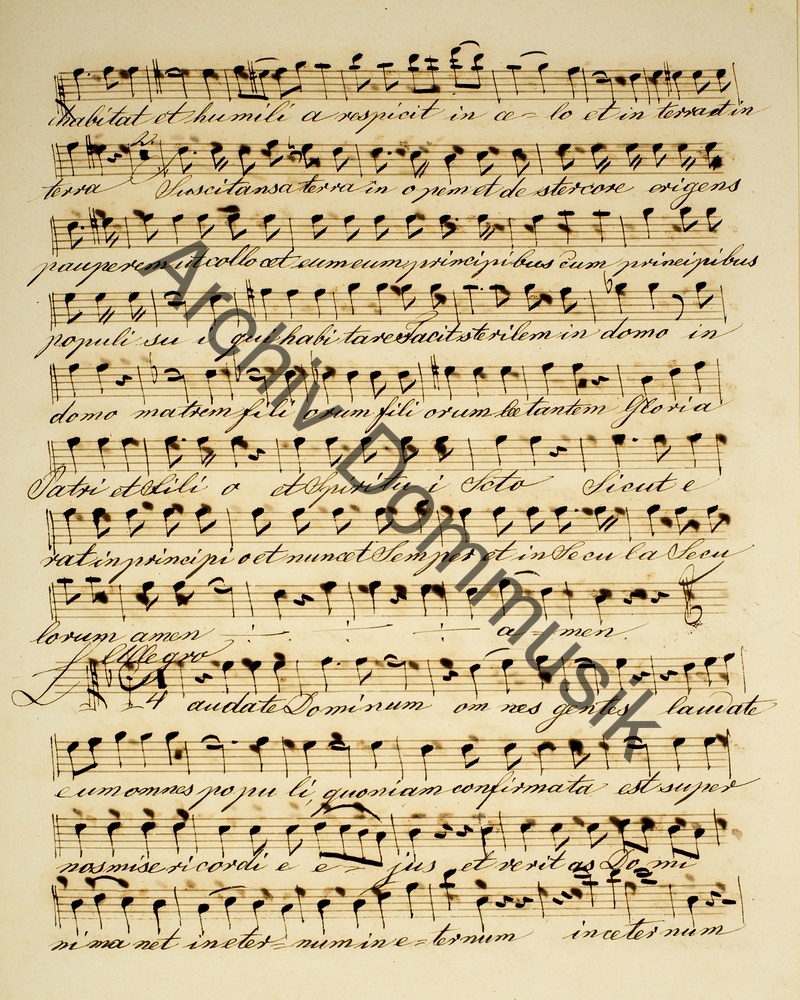 habitat et humili a respicit in ce = lo et in terra et in
22
terra Suscitansa terra in o pem et de stercore erigens
pauperem ut collocet eum eum principibus cum principibus
populi su i qui habi tare facit sterilem in domo in
domo matrem fili orum fili orum lætantem Gloria
Patri et Fili o et Spiritu i Scto Sicut e
rat in principi o et nunc et Semper et in Secu la Secu
lorum amen a - men.
Allegro
4
Laudate Dominum om nes gentes laudate
eum omnes popu li, quoniam confirmata est super
nos mise ricordi e e = jus et verit as Do mi
ni ma net in eter = num in e = ternum in æter num
Archiv Dommusik